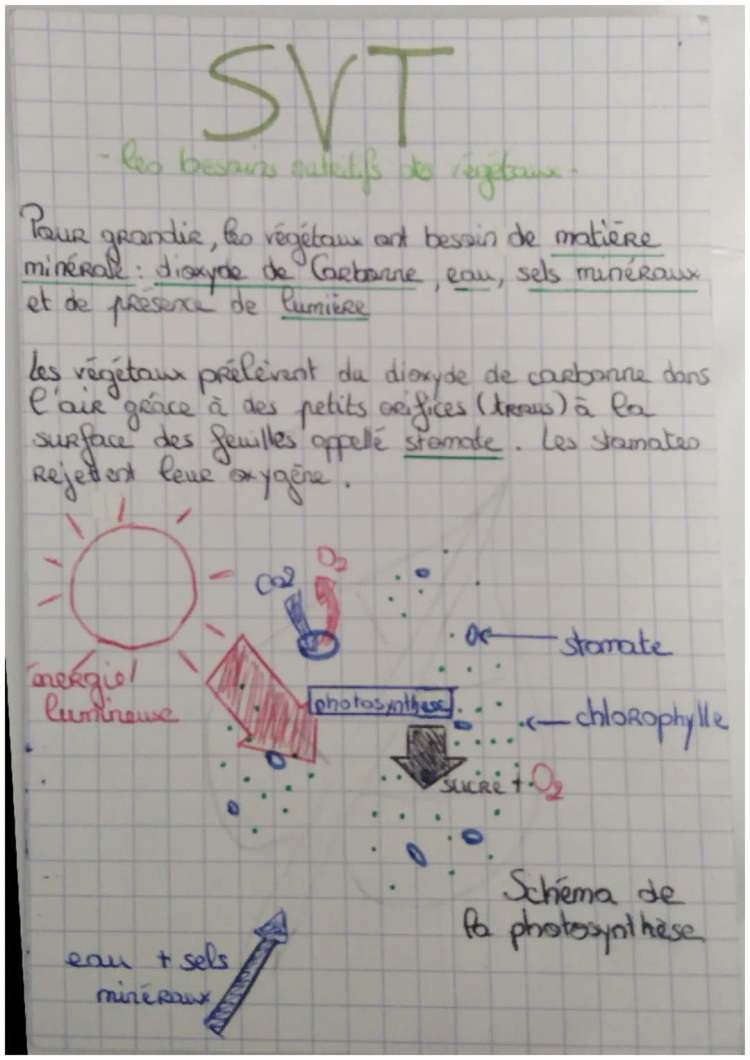 SVT
- Les besoins nutritifs des végétaux -
Pour grandir, les végétaux ont besoin de matière
minérale : dioxyde de Carbonne, eau, sels minéraux
et de présence de lumière
Les végétaux prélèvent du dioxyde de carbonne dans
l'air grâce à des petits orifices (trous) à la
surface des feuilles appellé stomate. Les stomates
rejettent leur oxygène.
CO2
O2
stomate
énergie
lumineuse
photosynthèse
chlorophylle
sucre + O2
Schéma de
la photosynthèse
eau + sels
minéraux